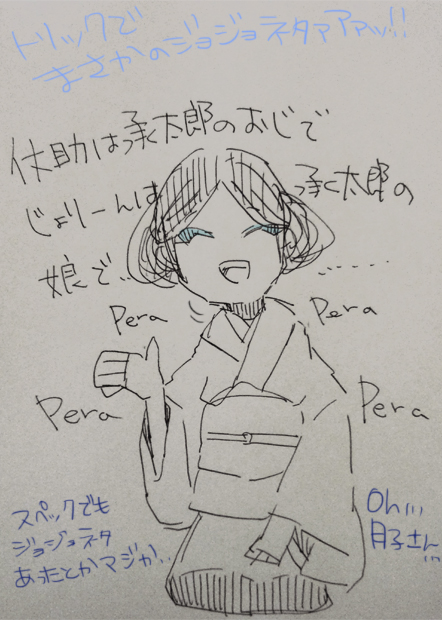 トリックで
まさかのジョジョネタァアァッ!!
仗助は承太郎のおじで
じょりーんは承太郎の
娘で‥ ‥‥‥
Pera
Pera
Pera
Pera
スペックでも
ジョジョネタ
あったとかマジか‥
Oh…
月子さん…